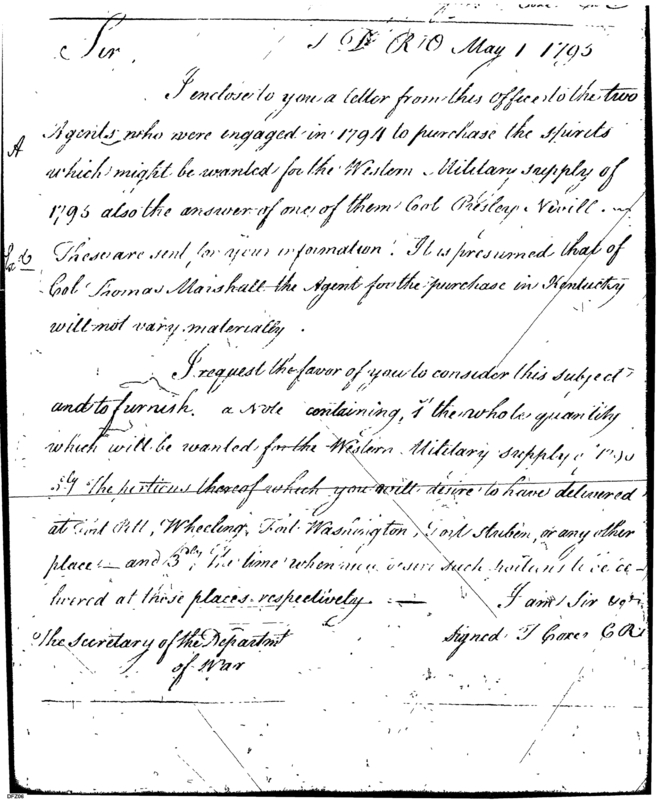 Sir,
T D R O May 1 1795
I enclose to you a letter from this office to the two
A
Agents who were engaged in 1794 to purchase the spirits
which might be wanted for the Western Military supply of
1795 also the answer of one of them Col Presley Nevill.
These are sent for your information. It is presumed that of
Col Thomas Marshall the Agent for the purchase in Kentucky
will not vary materially.
I request the favor of you to consider this subject
and to furnish a Note containing, 1st the whole quantity
which will be wanted for the Western Military supply
2ly The portions thereof which you will desire to have delivered
at Fort Pitt, Wheeling, Fort Washington, Fort Stuben, or any other
place — and 3dly, the time when you desire such portions to be de-
livered at these places respectively. —
I am Sir &c
The Secretary of the Departmt
of War
signed T Coxe C R
DFZ06